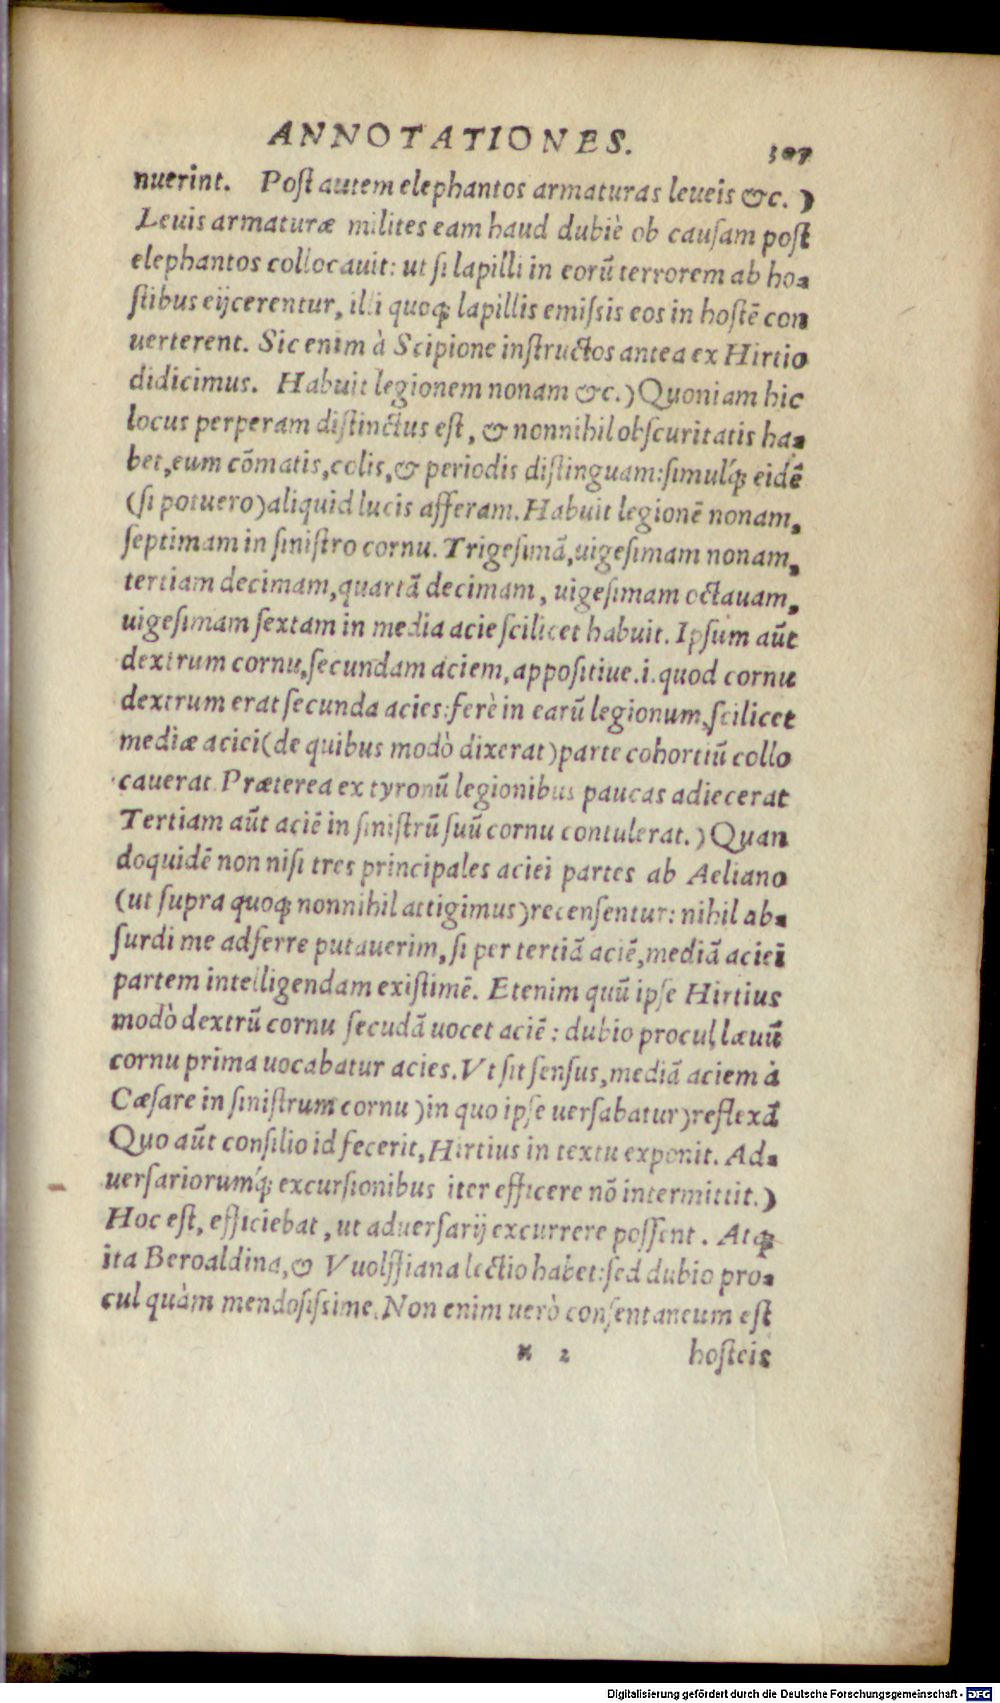 ANNOTATIONES.
307
nuerint. Post autem elephantos armaturas leueis &c. )
Leuis armaturæ milites eam haud dubiè ob causam post
elephantos collocauit: ut si lapilli in eorũ terrorem ab ho-
stibus eijcerentur, illi quoq; lapillis emissis eos in hostẽ con
uerterent. Sic enim à Scipione instructos antea ex Hirtio
didicimus. Habuit legionem nonam &c.) Quoniam hic
locus perperam distinctus est, & nonnihil obscuritatis ha-
bet, eum cõmatis, colis, & periodis distinguam: simulq́; eidẽ
(si potuero) aliquid lucis afferam. Habuit legionẽ nonam,
septimam in sinistro cornu. Trigesimã, uigesimam nonam,
tertiam decimam, quartã decimam, uigesimam octauam,
uigesimam sextam in media acie scilicet habuit. Ipsum aũt
dextrum cornu, secundam aciem, appositiue .i. quod cornu
dextrum erat secunda acies: ferè in earũ legionum, scilicet
mediæ aciei (de quibus modò dixerat) parte cohortiũ collo
cauerat. Præterea ex tyronũ legionibus paucas adiecerat
Tertiam aũt aciẽ in sinistrũ suũ cornu contulerat. ) Quan
doquidẽ non nisi tres principales aciei partes ab Aeliano
(ut supra quoq; nonnihil attigimus) recensentur: nihil ab-
surdi me adferre putauerim, si per tertiã aciẽ, mediã aciei
partem intelligendam existimẽ. Etenim quũ ipse Hirtius
modò dextrũ cornu secũdã uocet aciẽ: dubio procul, læuũ
cornu prima uocabatur acies. Vt sit sensus, mediã aciem à
Cæsare in sinistrum cornu )in quo ipse uersabatur) reflexã
Quo aũt consilio id fecerit, Hirtius in textu exponit. Ad-
uersariorumq́; excursionibus iter efficere nõ intermittit. )
Hoc est, efficiebat, ut aduersarij excurrere possent. Atq;
ita Beroaldina, & Vuolffiana lectio habet: sed dubio pro-
cul quàm mendosissime. Non enim uerò consentaneum est
x 2
hosteis
Digitalisierung gefördert durch die Deutsche Forschungsgemeinschaft - DFG